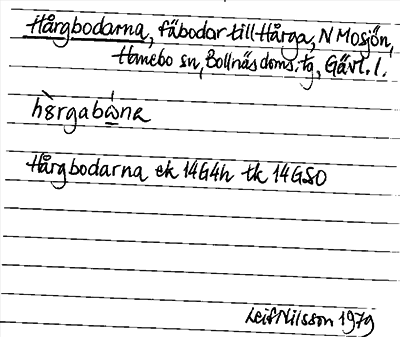 Hårgbodarna, fäbodar till Hårga, N Mosjön,
Hanebo sn, Bollnäs doms. tg, Gävl. l.
Hårgbodarna ek 14G4h tk 14GSO
Leif Nilsson 1979